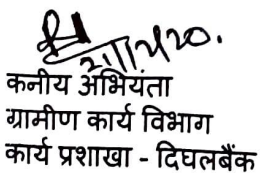 कनीय अभियंता
ग्रामीण कार्य विभाग
कार्य प्रशाखा - दिघलबैंक